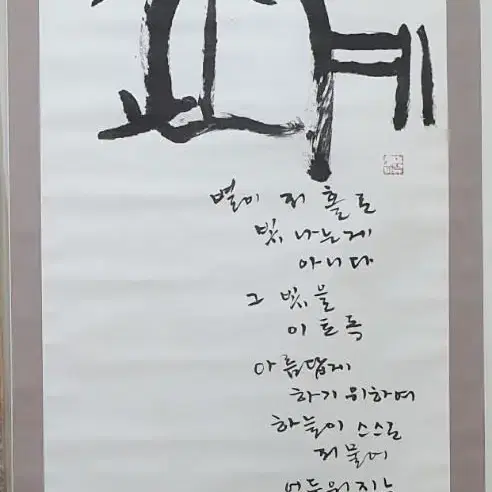 별이 저 홀로
빛 나는게
아니다
그 빛을
이토록
아름답게
하기 위하여
하늘이 스스로
저물어
어두워지는